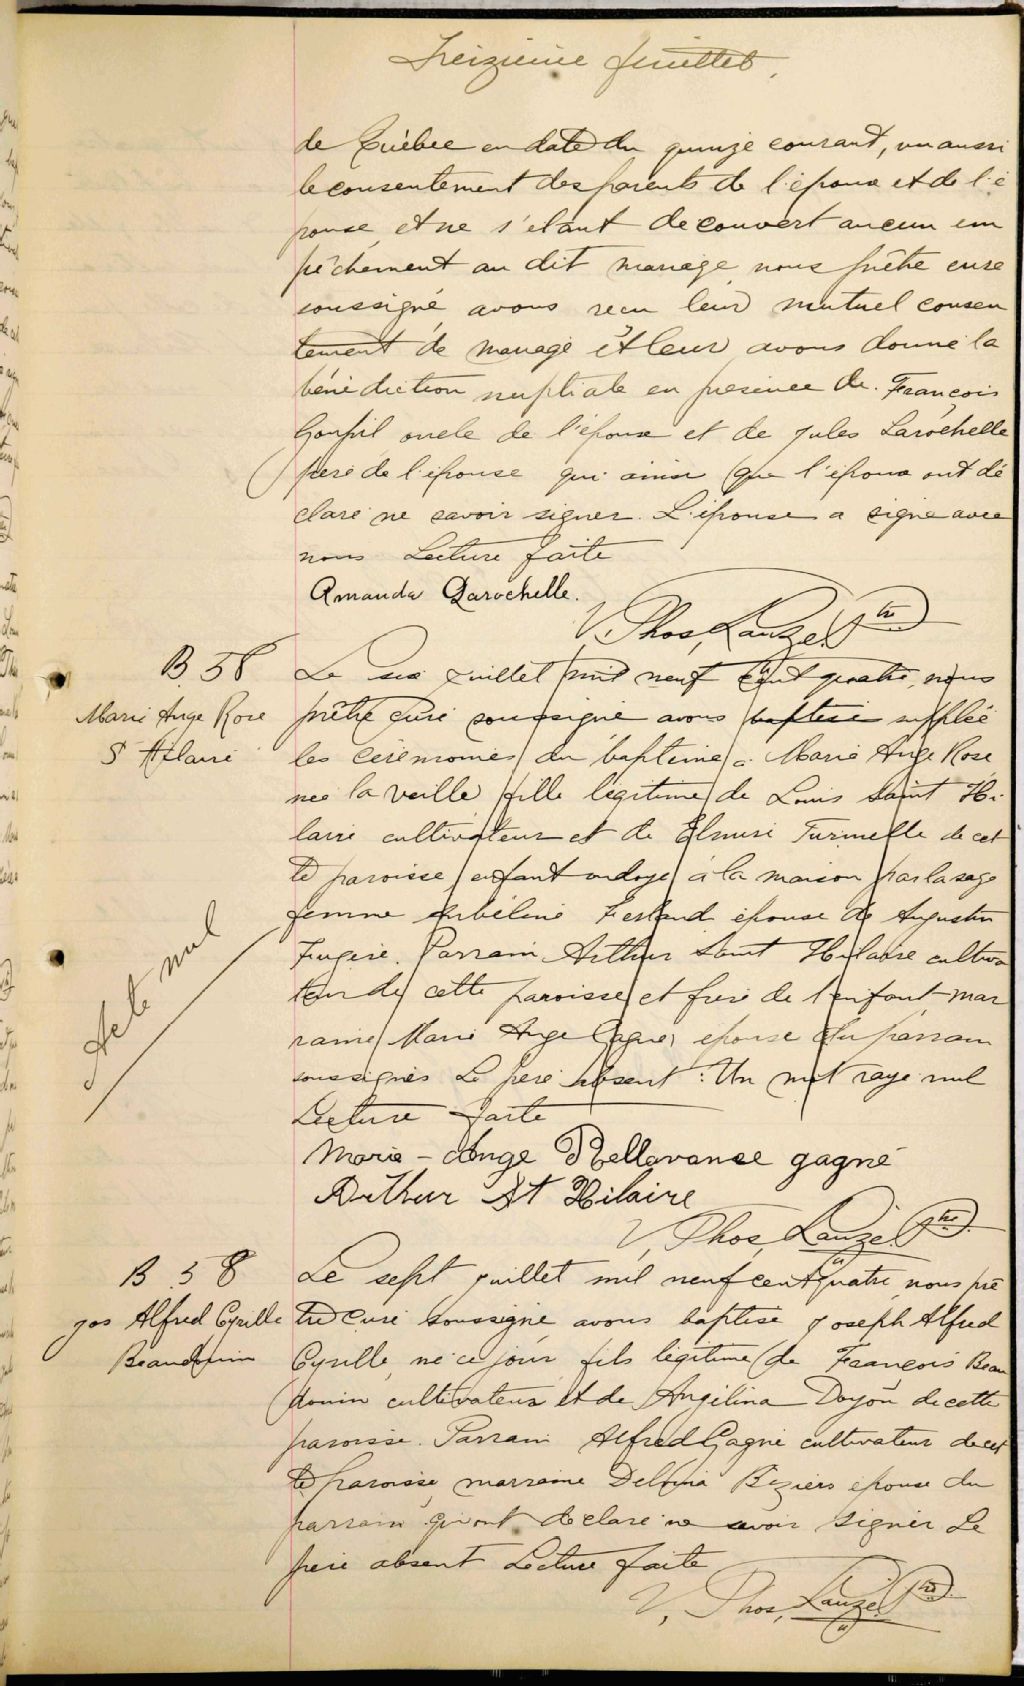 Treizième feuillet.
de Québec en date du quinze courant, vu aussi
le consentement des parents de l'époux et de l'é
pouse et ne s'étant decouvert aucun em
pêchement au dit mariage nous prêtre curé
soussigné avons recu leur mutuel consen
tement de mariage et leur avons donné la
bénédiction nuptiale en présence de François
Goupil oncle de l'époux et de Jules Larochelle
père de l'épouse qui ainsi que l'époux ont dé
claré ne savoir signer. L'épouse a signé avec
nous Lecture faite
Amanda Larochelle.
V. Thos, Lauzé Ptre
B 58
Marie Ange Rose
St Hilaire
Acte nul
Le six juillet mil neuf cent quatre, nous
prêtre curé soussigné avons baptisé suppléé
les cérémonies du baptême à Marie Ange Rose
née la veille fille légitime de Louis Saint Hi
laire cultivateur et de Elmire Turmelle de cet
te paroisse enfant ondoyé à la maison par la sage
femme Ferland épouse de Augustin
Fugère. Parrain Arthur Saint Hilaire cultiva
teur de cette paroisse et frère de l'enfant mar
raine Marie Ange Gagné, épouse du parrain
soussignés Le père absent : Un mot rayé nul
Lecture faite
Marie-Ange Bellavance gagné
Arthur St Hilaire
V, Thos, Lauzé Ptre
B 58
Jos Alfred Cyrille
Beaudouin
Le sept juillet mil neuf cent quatre nous prê
tre curé soussigné avons baptisé Joseph Alfred
Cyrille né ce jour fils légitime de François Beau
douin cultivateur et de Angélina Doyon de cette
paroisse. Parrain Alfred Gagné cultivateur de cet
te paroisse marraine Delvina Béziers épouse du
parrain qui ont déclaré ne savoir signer Le
père absent Lecture faite
V, Thos, Lauzé Ptre